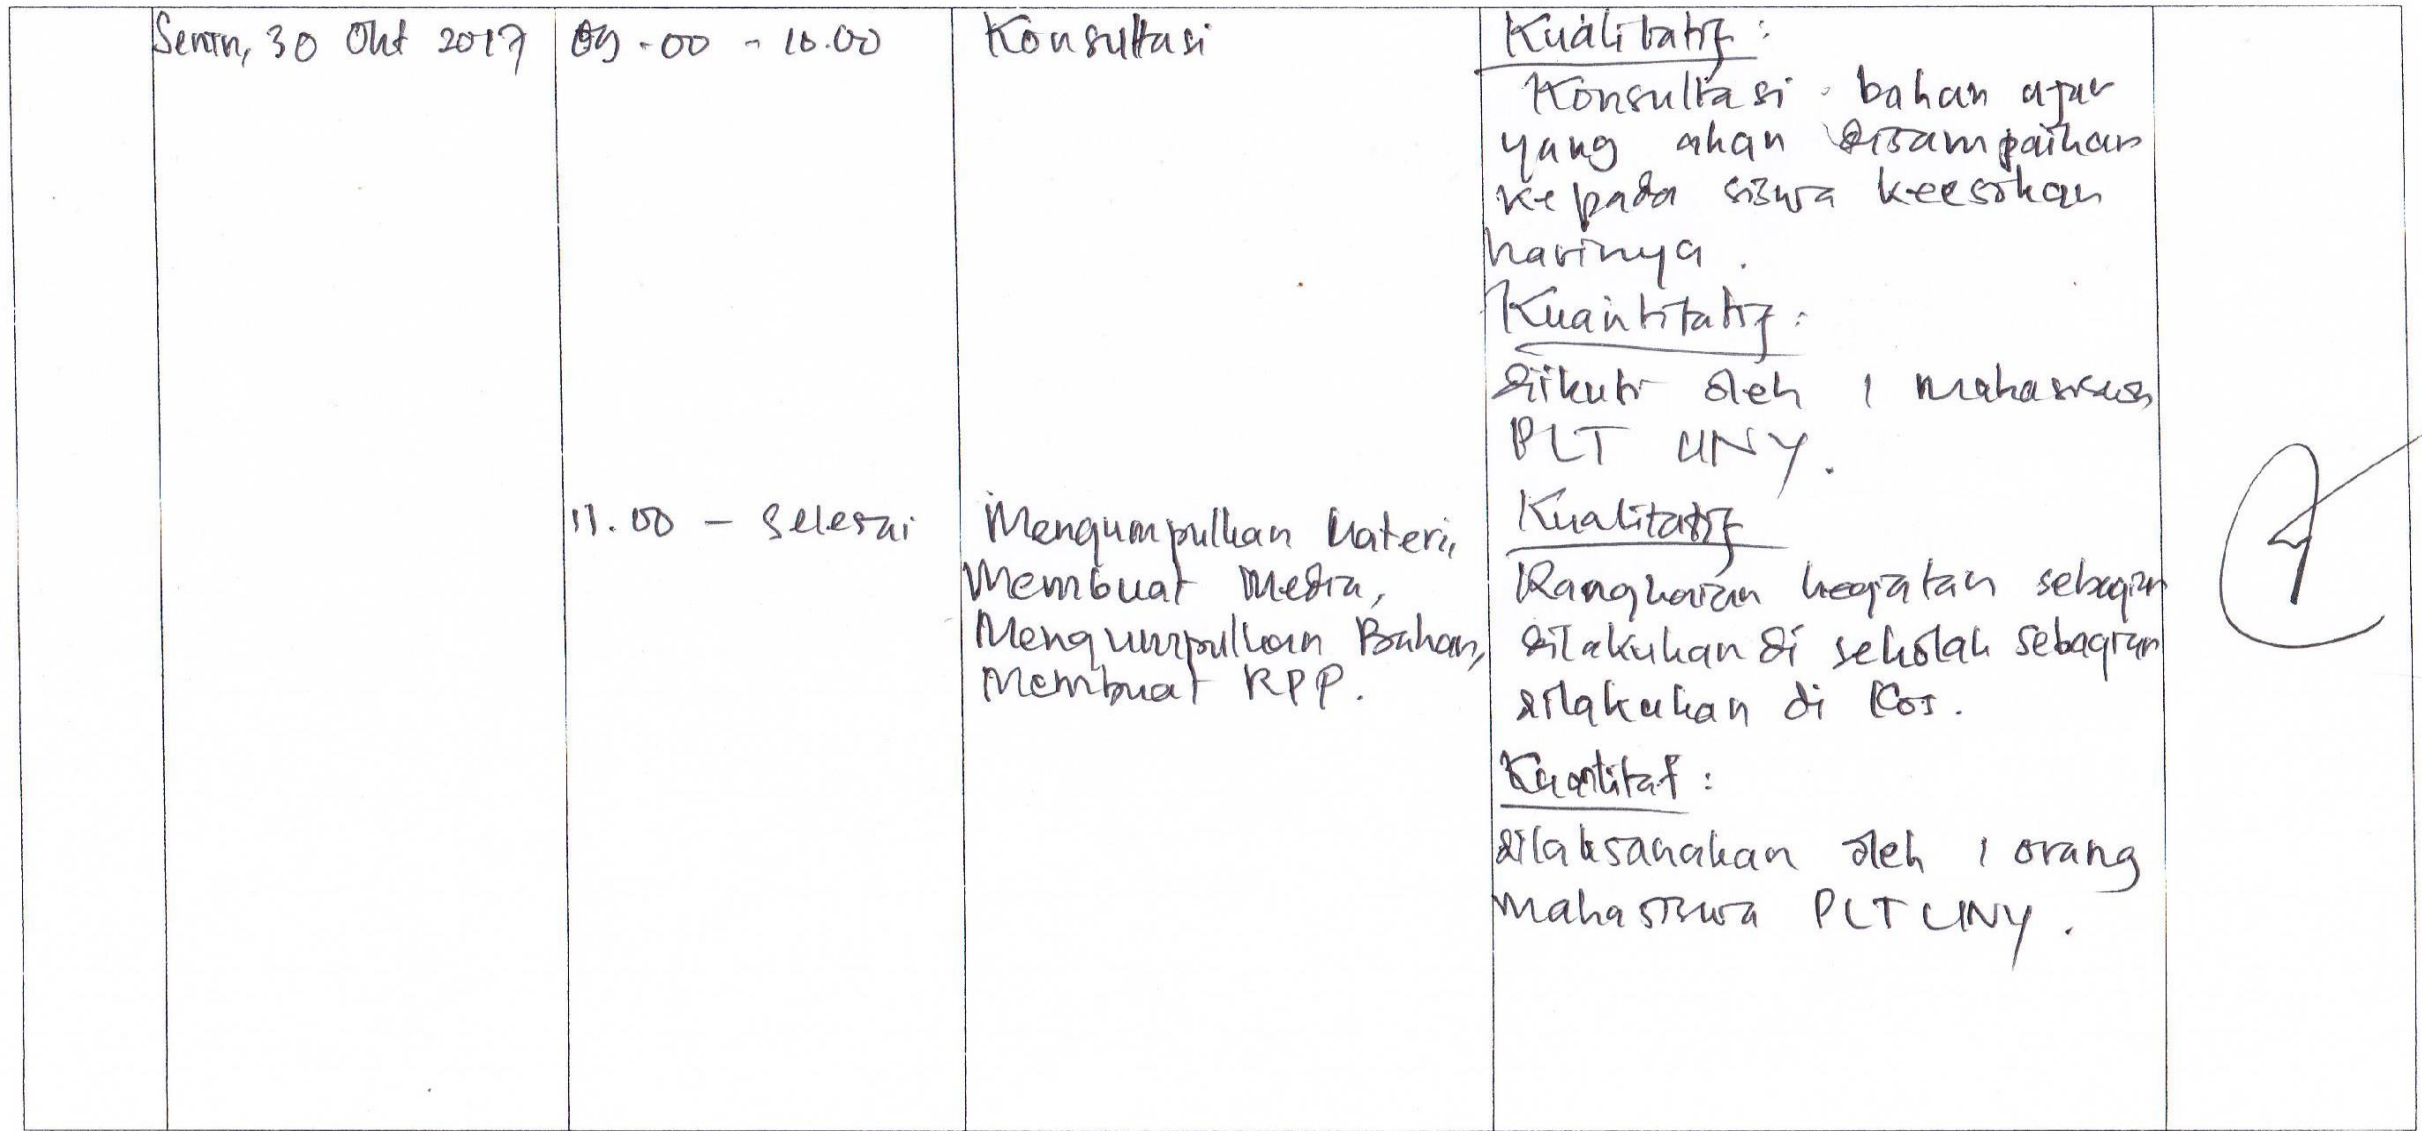 Senin, 30 Okt 2017
09.00 - 10.00
Konsultasi
Kualitatif :
Konsultasi bahan ajar
yang akan disampaikan
kepada siswa keesokan
harinya.
Kuantitatif :
diikuti oleh 1 mahasiswa
PLT UNY.
11.00 - Selesai
Mengumpulkan Materi,
Membuat Media,
Mengumpulkan Bahan,
Membuat RPP.
Kualitatif
Rangkaian kegiatan sebagian
dilakukan di sekolah sebagian
dilakukan di Kos.
Kuantitaf :
dilaksanakan oleh 1 orang
mahasiswa PLT UNY.